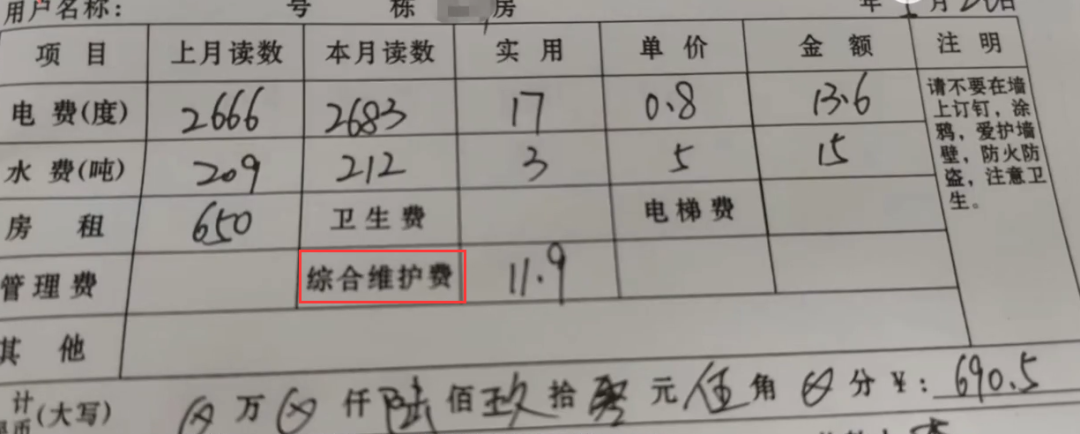 用户名称: 号 栋 房 年 月 日
项目 上月读数 本月读数 实用 单价 金额 注明
电费(度) 2666 2683 17 0.8 13.6
水费(吨) 209 212 3 5 15
房租 650 卫生费 电梯费
管理费 综合维护费 11.9
其他
请不要在墙
上订钉,涂
鸦,爱护墙
壁,防火防
盗,注意卫
生。
计(大写) 万 仟陆佰玖拾零元伍角 分¥:690.5